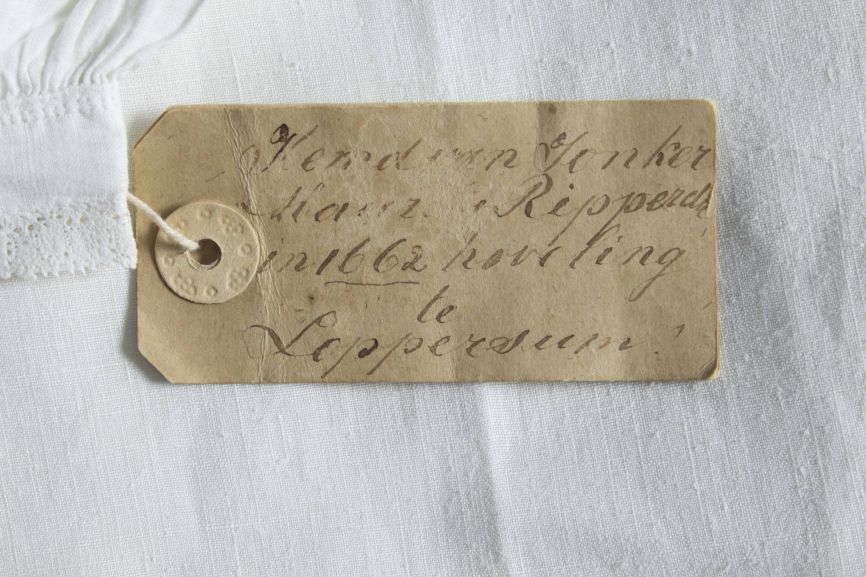 Hemd van Jonker
Ripperda
in 1662 hoveling
te
Loppersum!